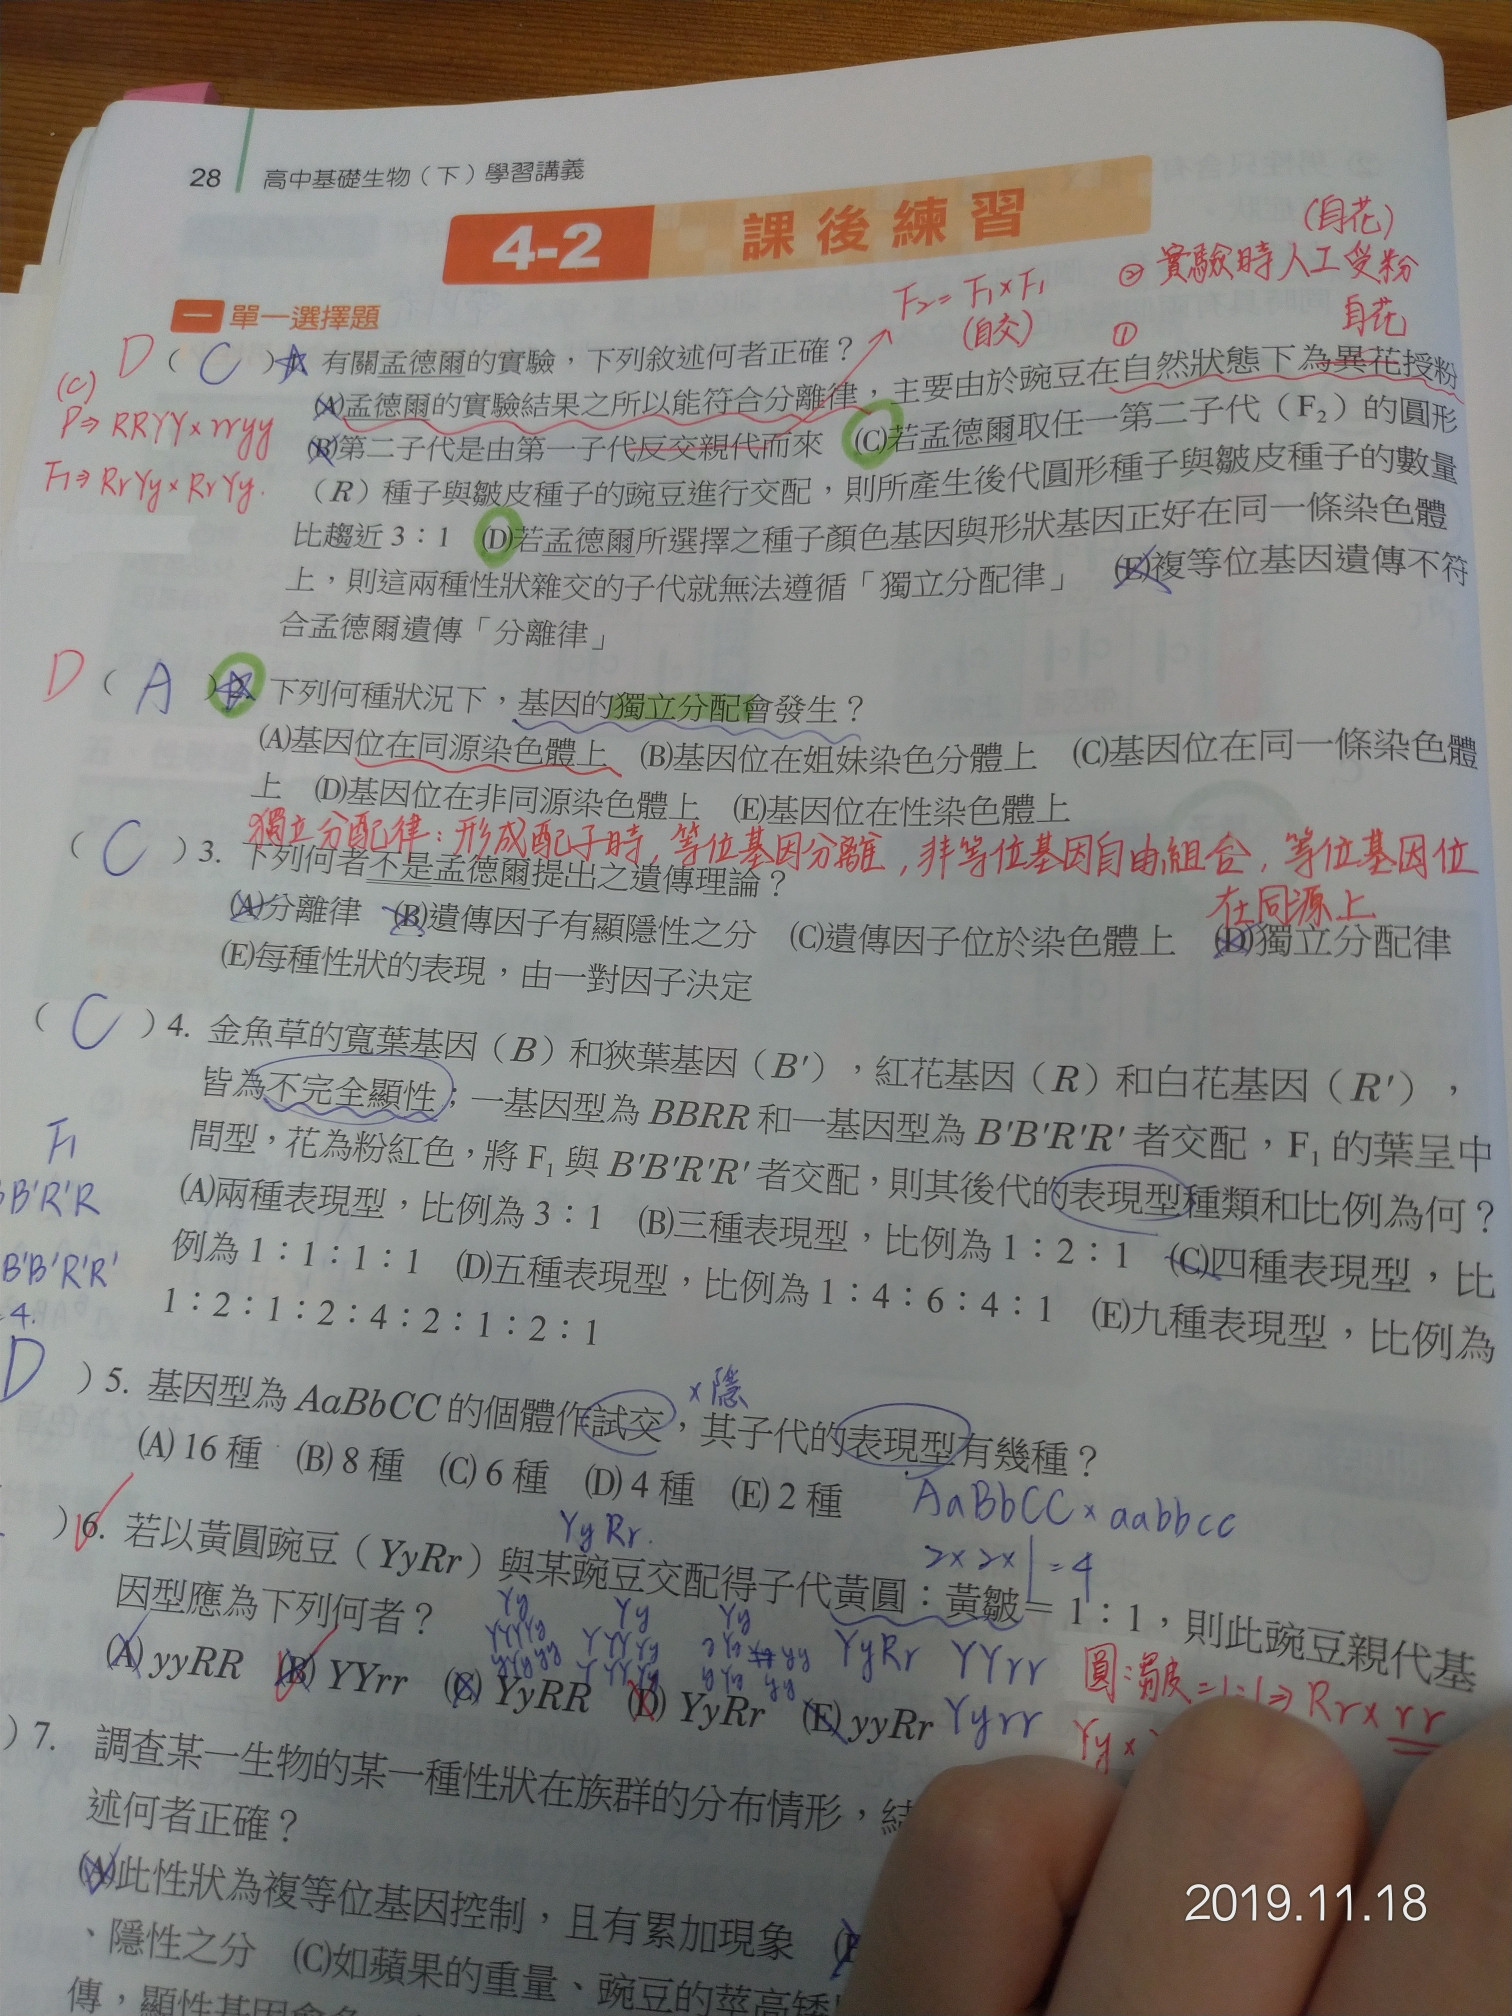 28 高中基礎生物（下）學習講義
4-2 課後練習
(自花)
② 實驗時人工受粉
F₂ = F₁×F₁
(自交)
① 自花
一 單一選擇題
D（ C ）1. 有關孟德爾的實驗，下列敘述何者正確？
(A)孟德爾的實驗結果之所以能符合分離律，主要由於豌豆在自然狀態下為異花授粉
(B)第二子代是由第一子代反交親代而來 (C)若孟德爾取任一第二子代（F₂）的圓形
（R）種子與皺皮種子的豌豆進行交配，則所產生後代圓形種子與皺皮種子的數量
比趨近 3：1 (D)若孟德爾所選擇之種子顏色基因與形狀基因正好在同一條染色體
上，則這兩種性狀雜交的子代就無法遵循「獨立分配律」 (E)複等位基因遺傳不符
合孟德爾遺傳「分離律」
(C)
P⇒ RRYY×rryy
F₁⇒ RrYy×RrYy.
D（ A ）2. 下列何種狀況下，基因的獨立分配會發生？
(A)基因位在同源染色體上 (B)基因位在姐妹染色分體上 (C)基因位在同一條染色體
上 (D)基因位在非同源染色體上 (E)基因位在性染色體上
獨立分配律：形成配子時，等位基因分離，非等位基因自由組合，等位基因位
在同源上
（ C ）3. 下列何者不是孟德爾提出之遺傳理論？
(A)分離律 (B)遺傳因子有顯隱性之分 (C)遺傳因子位於染色體上 (D)獨立分配律
(E)每種性狀的表現，由一對因子決定
（ C ）4. 金魚草的寬葉基因（B）和狹葉基因（B′），紅花基因（R）和白花基因（R′），
皆為不完全顯性；一基因型為 BBRR 和一基因型為 B′B′R′R′ 者交配，F₁ 的葉呈中
間型，花為粉紅色，將 F₁ 與 B′B′R′R′ 者交配，則其後代的表現型種類和比例為何？
(A)兩種表現型，比例為 3：1 (B)三種表現型，比例為 1：2：1 (C)四種表現型，比
例為 1：1：1：1 (D)五種表現型，比例為 1：4：6：4：1 (E)九種表現型，比例為
1：2：1：2：4：2：1：2：1
F₁
BB′R′R
B′B′R′R′
4.
D ）5. 基因型為 AaBbCC 的個體作試交，其子代的表現型有幾種？
×隱
(A) 16 種 (B) 8 種 (C) 6 種 (D) 4 種 (E) 2 種
AaBbCC×aabbcc
2×2×1=4
）6. 若以黃圓豌豆（YyRr）與某豌豆交配得子代黃圓：黃皺＝1：1，則此豌豆親代基
YyRr.
因型應為下列何者？
(A) yyRR (B) YYrr (C) YyRR (D) YyRr (E) yyRr
Yy Yy Yy
YyRr YYrr
Yyrr
圓:皺=1:1⇒ Rr×rr
Yy×
）7. 調查某一生物的某一種性狀在族群的分布情形，結
述何者正確？
(A)此性狀為複等位基因控制，且有累加現象
、隱性之分 (C)如蘋果的重量、豌豆的莖高矮
傳，顯性基因會
2019.11.18